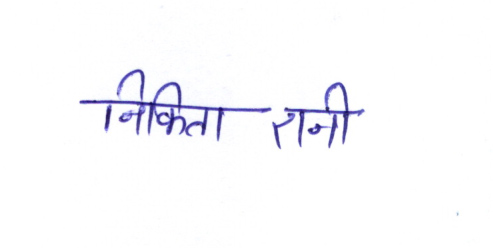 निकिता रानी